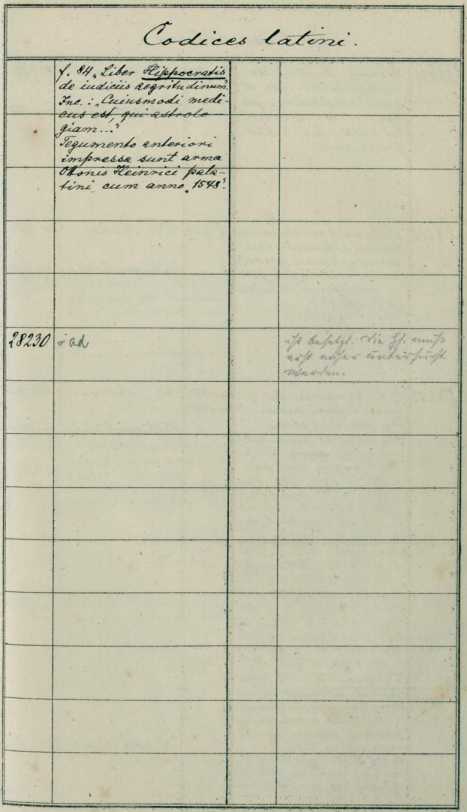 Codices latini.
f. 84 „Liber Hippocratis
de iudiciis aegritudinum.
Inc.: „Cuiusmodi medi-
cus est, qui astrolo
giam..."
Tegumento anteriori
impressa sunt arma
Otonis Heinrici pala-
tini cum anno „1548".
28230
ist besetzt. Die Hs. muß
erst näher untersucht
werden.